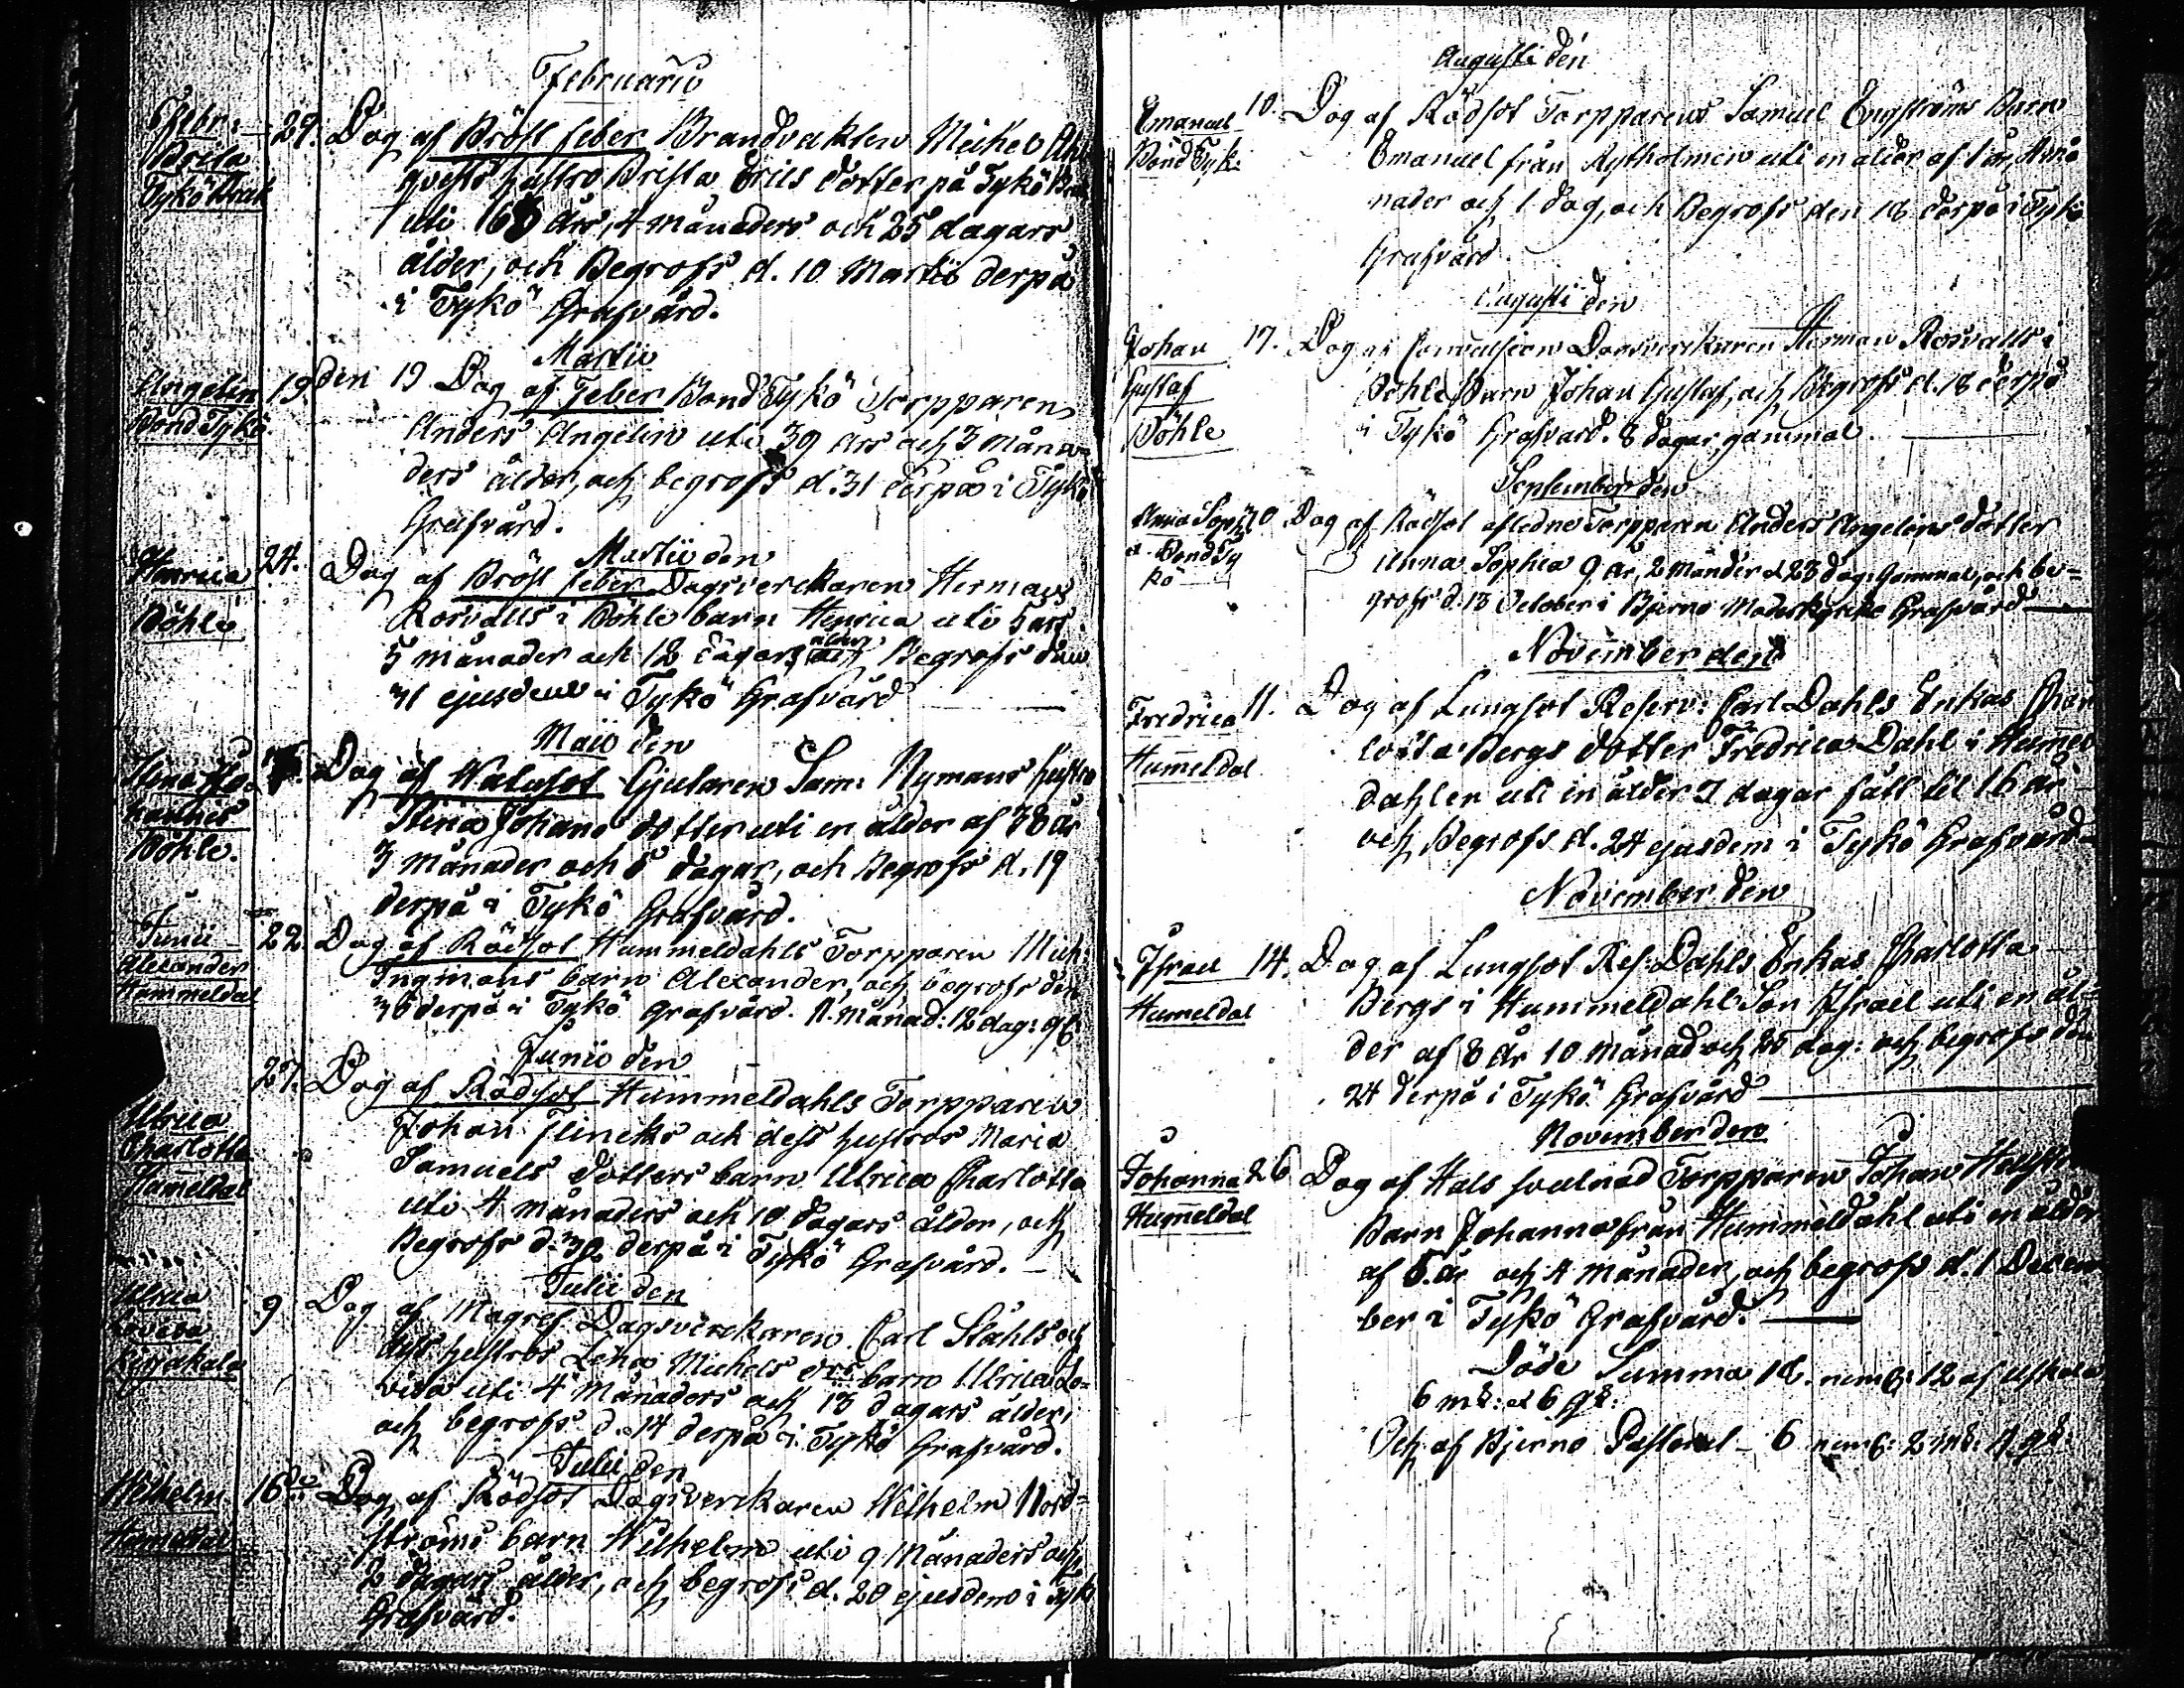 Februarii
Febr: 29. Dog af Bröst feber Brandvakten Michel
Brita qvists hustro Brita Erics dotter på Tykö
Tykö Bruk uti 16 års, 4 månaders och 25 dagars
ålder, och Begrofs d. 10 Martii derpå
i Tykö Grafvård.
Martii
Angelin 19. den 19 Dog af Feber Bond Tykö Torpparen
Bond Tykö Anders Angelin uti 39 års och 3 måna-
ders ålder, och begrofs d. 31 derpå i Tykö
Grafvård.
Martii den
Henrica 24. Dog af Bröst feber Dagsverckaren Herman
Böhle Rosvalls i Böhle barn Henrica uti 5 års
5 månader och 12 dagars ålder, och Begrofs den
31 ejusdem i Tykö Grafvård
Maii den
Dog af Gjutaren Sam: Nymans hustro
Stina Johans dotter uti en ålder af 38 år
Böhle. 3 månader och 5 dagar, och Begrofs d. 19
derpå i Tykö Grafvård.
Junii 22. Dog af Rödsot Hummeldahls Torpparen Mich:
Alexander Ingmans barn Alexander, och begrofs den
Hummeldal 30 derpå i Tykö Grafvård. 11 månad: 12 dag: gl:
Junii den
27. Dog af Rödsot Hummeldahls Torpparen
Johan Flincks och dess hustros Maria
Ulrica Samuels dotters barn Ulrica Charlotta
Charlotta uti 4 månaders och 10 dagars ålder, och
Hummeldal Begrofs d. 30 derpå i Tykö Grafvård.
Julii den
Ulrica 9 Dog af Magref Dagsverckaren Carl Ståhls och
Lovisa dess hustros Lena Michels drs barn Ulrica Lo-
Kirjakala visa uti 4 månaders och 13 dagars ålder,
och begrofs d. 14 derpå i Tykö Grafvård.
Julii den
Wilhelm 16 Dog af Rödsot Dagsverckaren Wilhelm Nord-
Hummeldal ströms barn Wilhelm uti 9 Månaders och
2 dagars ålder, och begrofs d. 20 ejusdem i Tykö
Grafvård.
Augusti den
Emanuel 10. Dog af Rödsot Torpparens Samuel Engströms Barn
Bond Tyk: Emanuel från Rytholmen uti en ålder af 1 år, må-
nader och 1 dag, och Begrofs den 18 derpå i Tykö
Grafvård.
Augusti den
Johan 17. Dog af Dagsverckaren Herman Rosvalls i
Gustaf Böhle Barn Johan Gustaf, och Begrofs d. 18 derpå
Böhle i Tykö Grafvård. 8 dagar gammal.
September den
Anna Sophi 10 Dog af Rödsot afledne Torpparen Anders Angelins dotter
a Bond Ty Anna Sophia 9 år, 2 månder & 23 dag: Gammal, och be-
kö grofs d. 13 October i Bjerno Moderkyrko Grafvård
November den
Fredrica 11. Dog af Lungsot Reserv: Carl Dahls Enkas Char
Hum̄eldal lotta Bergs dotter Fredrica Dahl i Hum̄el
dahlen uti en ålder 7 dagar fatt til 16 år
och Begrofs d. 24 ejusdem i Tykö Grafvård
November den
Israel 14. Dog af Lungsot Res: Dahls Enkas Charlotta
Hum̄eldal Bergs i Hummeldahl Son Israel uti en ål-
der af 8 år 10 månad och 25 dag: och begrofs den
24 derpå i Tykö Grafvård
November den
Johanna 26 Dog af Hals svulnad Torpparen Johan
Hum̄eldal Barn Johanna från Hummeldahl uti en ålder
af 5 år och 4 månader, och begrofs d. 1 Decem
ber i Tykö Grafvård.
Döde Summa 18. neml: 12 af Uskela
6 mk: & 6 qk:
Och af Bjerno Pastorat - 6 neml: 2 mk: 4 qk: